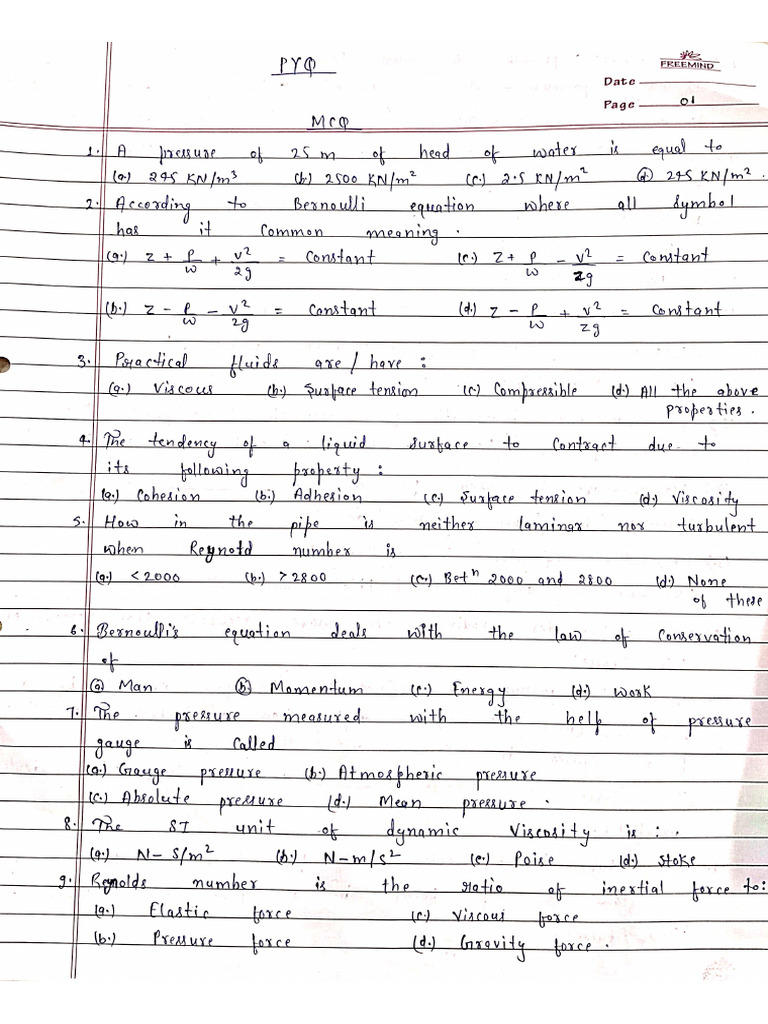 PYQ
FREEMIND
Date
Page 01
MCQ
1. A pressure of 25 m of head of water is equal to
(a.) 245 KN/m³ (b.) 2500 KN/m² (c.) 2.5 KN/m² (d) 245 KN/m².
2. According to Bernoulli equation where all symbol
has it common meaning.
(a.) Z + P/w + v²/2g = Constant (c.) Z + P/w - v²/2g = Constant
(b.) Z - P/w - v²/2g = Constant (d.) Z - P/w + v²/2g = Constant
3. Practical fluids are/have :
(a.) Viscous (b.) Surface tension (c.) Compressible (d.) All the above
properties.
4. The tendency of a liquid surface to contract due to
its following property :
(a.) Cohesion (b.) Adhesion (c.) Surface tension (d.) Viscosity
5. How in the pipe is neither laminar nor turbulent
when Reynold number is
(a.) <2000 (b.) >2800 (c.) Betⁿ 2000 and 2800 (d.) None
of these
6. Bernoulli's equation deals with the law of conservation
of
(a) Man (b) Momentum (c.) Energy (d.) work
7. The pressure measured with the help of pressure
gauge is called
(a.) Gauge pressure (b.) Atmospheric pressure
(c.) Absolute pressure (d.) Mean pressure.
8. The SI unit of dynamic Viscosity is :.
(a.) N-S/m² (b.) N-m/s² (c.) Poise (d.) Stoke
9. Reynolds number is the ratio of inertial force to:
(a.) Elastic force (c.) Viscous force
(b.) Pressure force (d.) Gravity force.